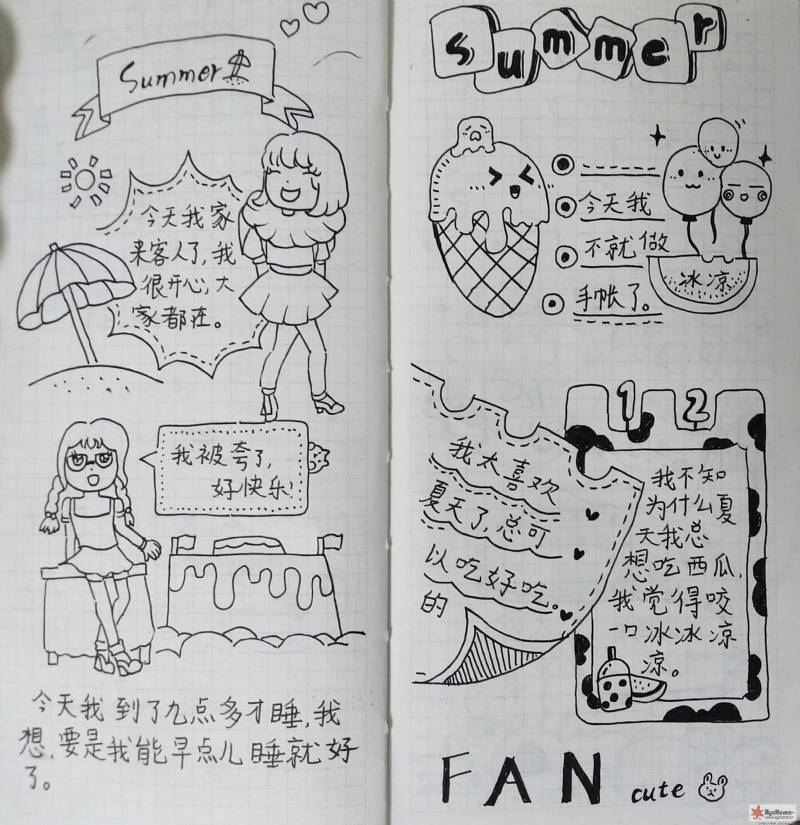 Summer
今天我家
来客人了,我
很开心,大
家都在。
我被夸了,
好快乐!
今天我到了九点多才睡,我
想,要是我能早点儿睡就好
了。
Summer
今天我
不就做
手帐了。
冰凉
我太喜欢
夏天了,总可
以吃好吃。
的
12
我不知
为什么夏
天我总
想吃西瓜,
我觉得咬
一口冰冰凉
凉。
FAN cute